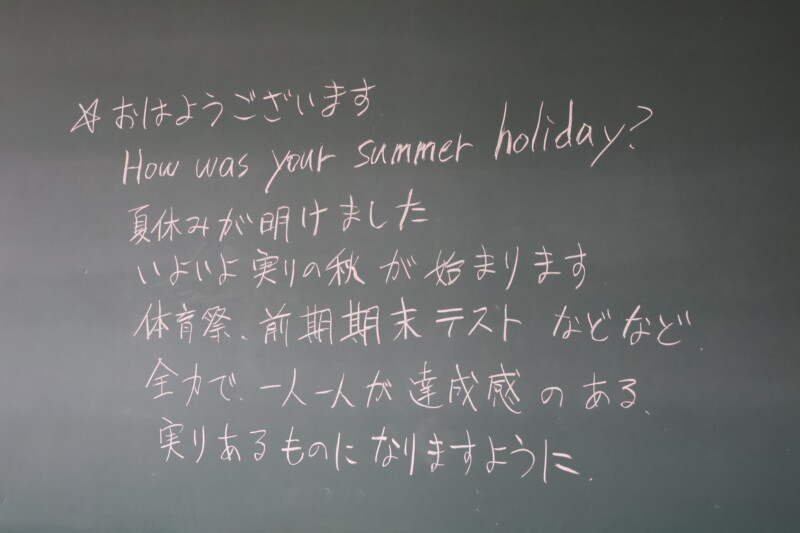 ☆おはようございます
How was your summer holiday?
夏休みが明けました
いよいよ実りの秋が始まります
体育祭、前期期末テストなどなど、
全力で、一人一人が達成感のある、
実りあるものになりますように。